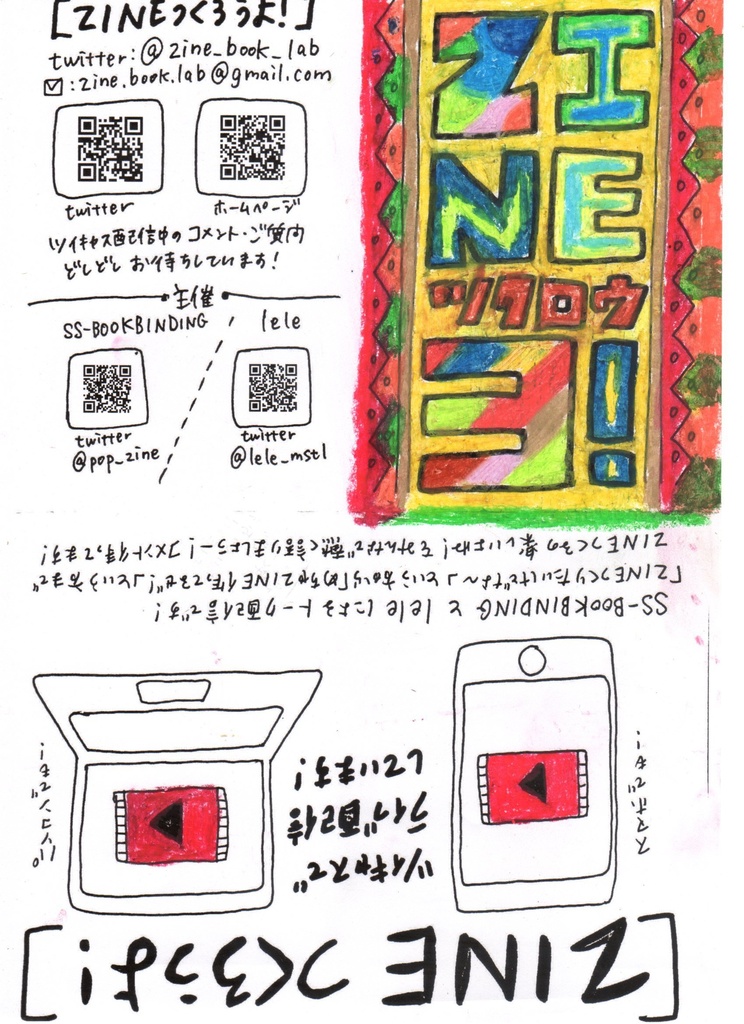 [ZINEつくろうよ!]
twitter:@zine_book_lab
:zine.book.lab@gmail.com
twitter
ホームページ
ツイキャス配信中のコメント・ご質問
どしどしお待ちしています!
主催
SS-BOOKBINDING
lele
twitter
@pop_zine
twitter
@lele_mstl
ZINE
ツクロウ
ヨ!
[ZINEつくろうよ!]
ツイキャスで
ライブ配信
しています!
スマホでも!
パソコンでも!
SS-BOOKBINDINGとleleによるトーク配信です!
「ZINEつくりたいけどな〜」という方から「めちゃZINE作ってるぜ!」という方まで
ZINEつくるの楽しいよね!そんなな
く語りましょうー!コメント待ってます!